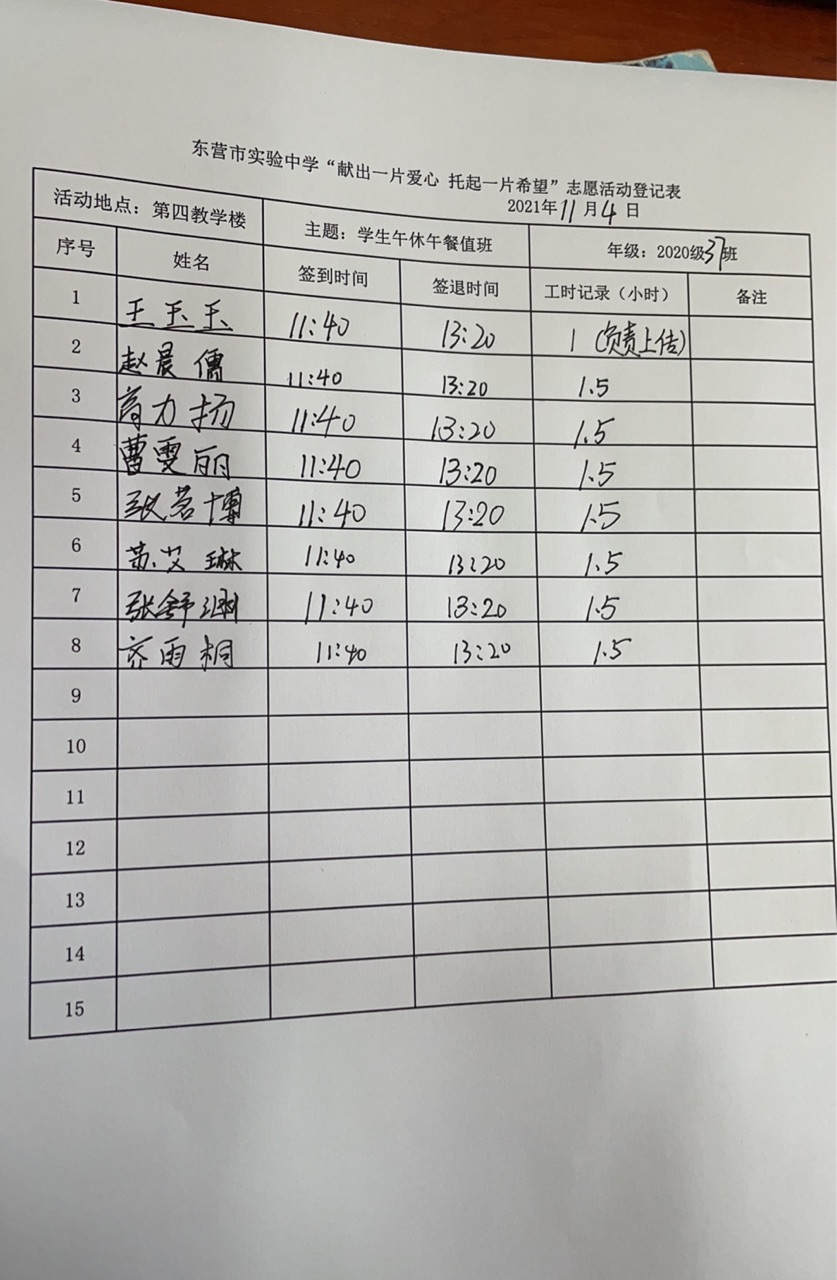 东营市实验中学“献出一片爱心 托起一片希望”志愿活动登记表
2021年11月4日
活动地点：第四教学楼 主题：学生午休午餐值班 年级：2020级37班
序号 姓名 签到时间 签退时间 工时记录（小时） 备注
1 王玉玉 11:40 13:20 1（负责上传）
2 赵晨儒 11:40 13:20 1.5
3 高力扬 11:40 13:20 1.5
4 曹雯丽 11:40 13:20 1.5
5 张茗博 11:40 13:20 1.5
6 苏艾琳 11:40 13:20 1.5
7 张舒涵 11:40 13:20 1.5
8 齐雨桐 11:40 13:20 1.5
9
10
11
12
13
14
15